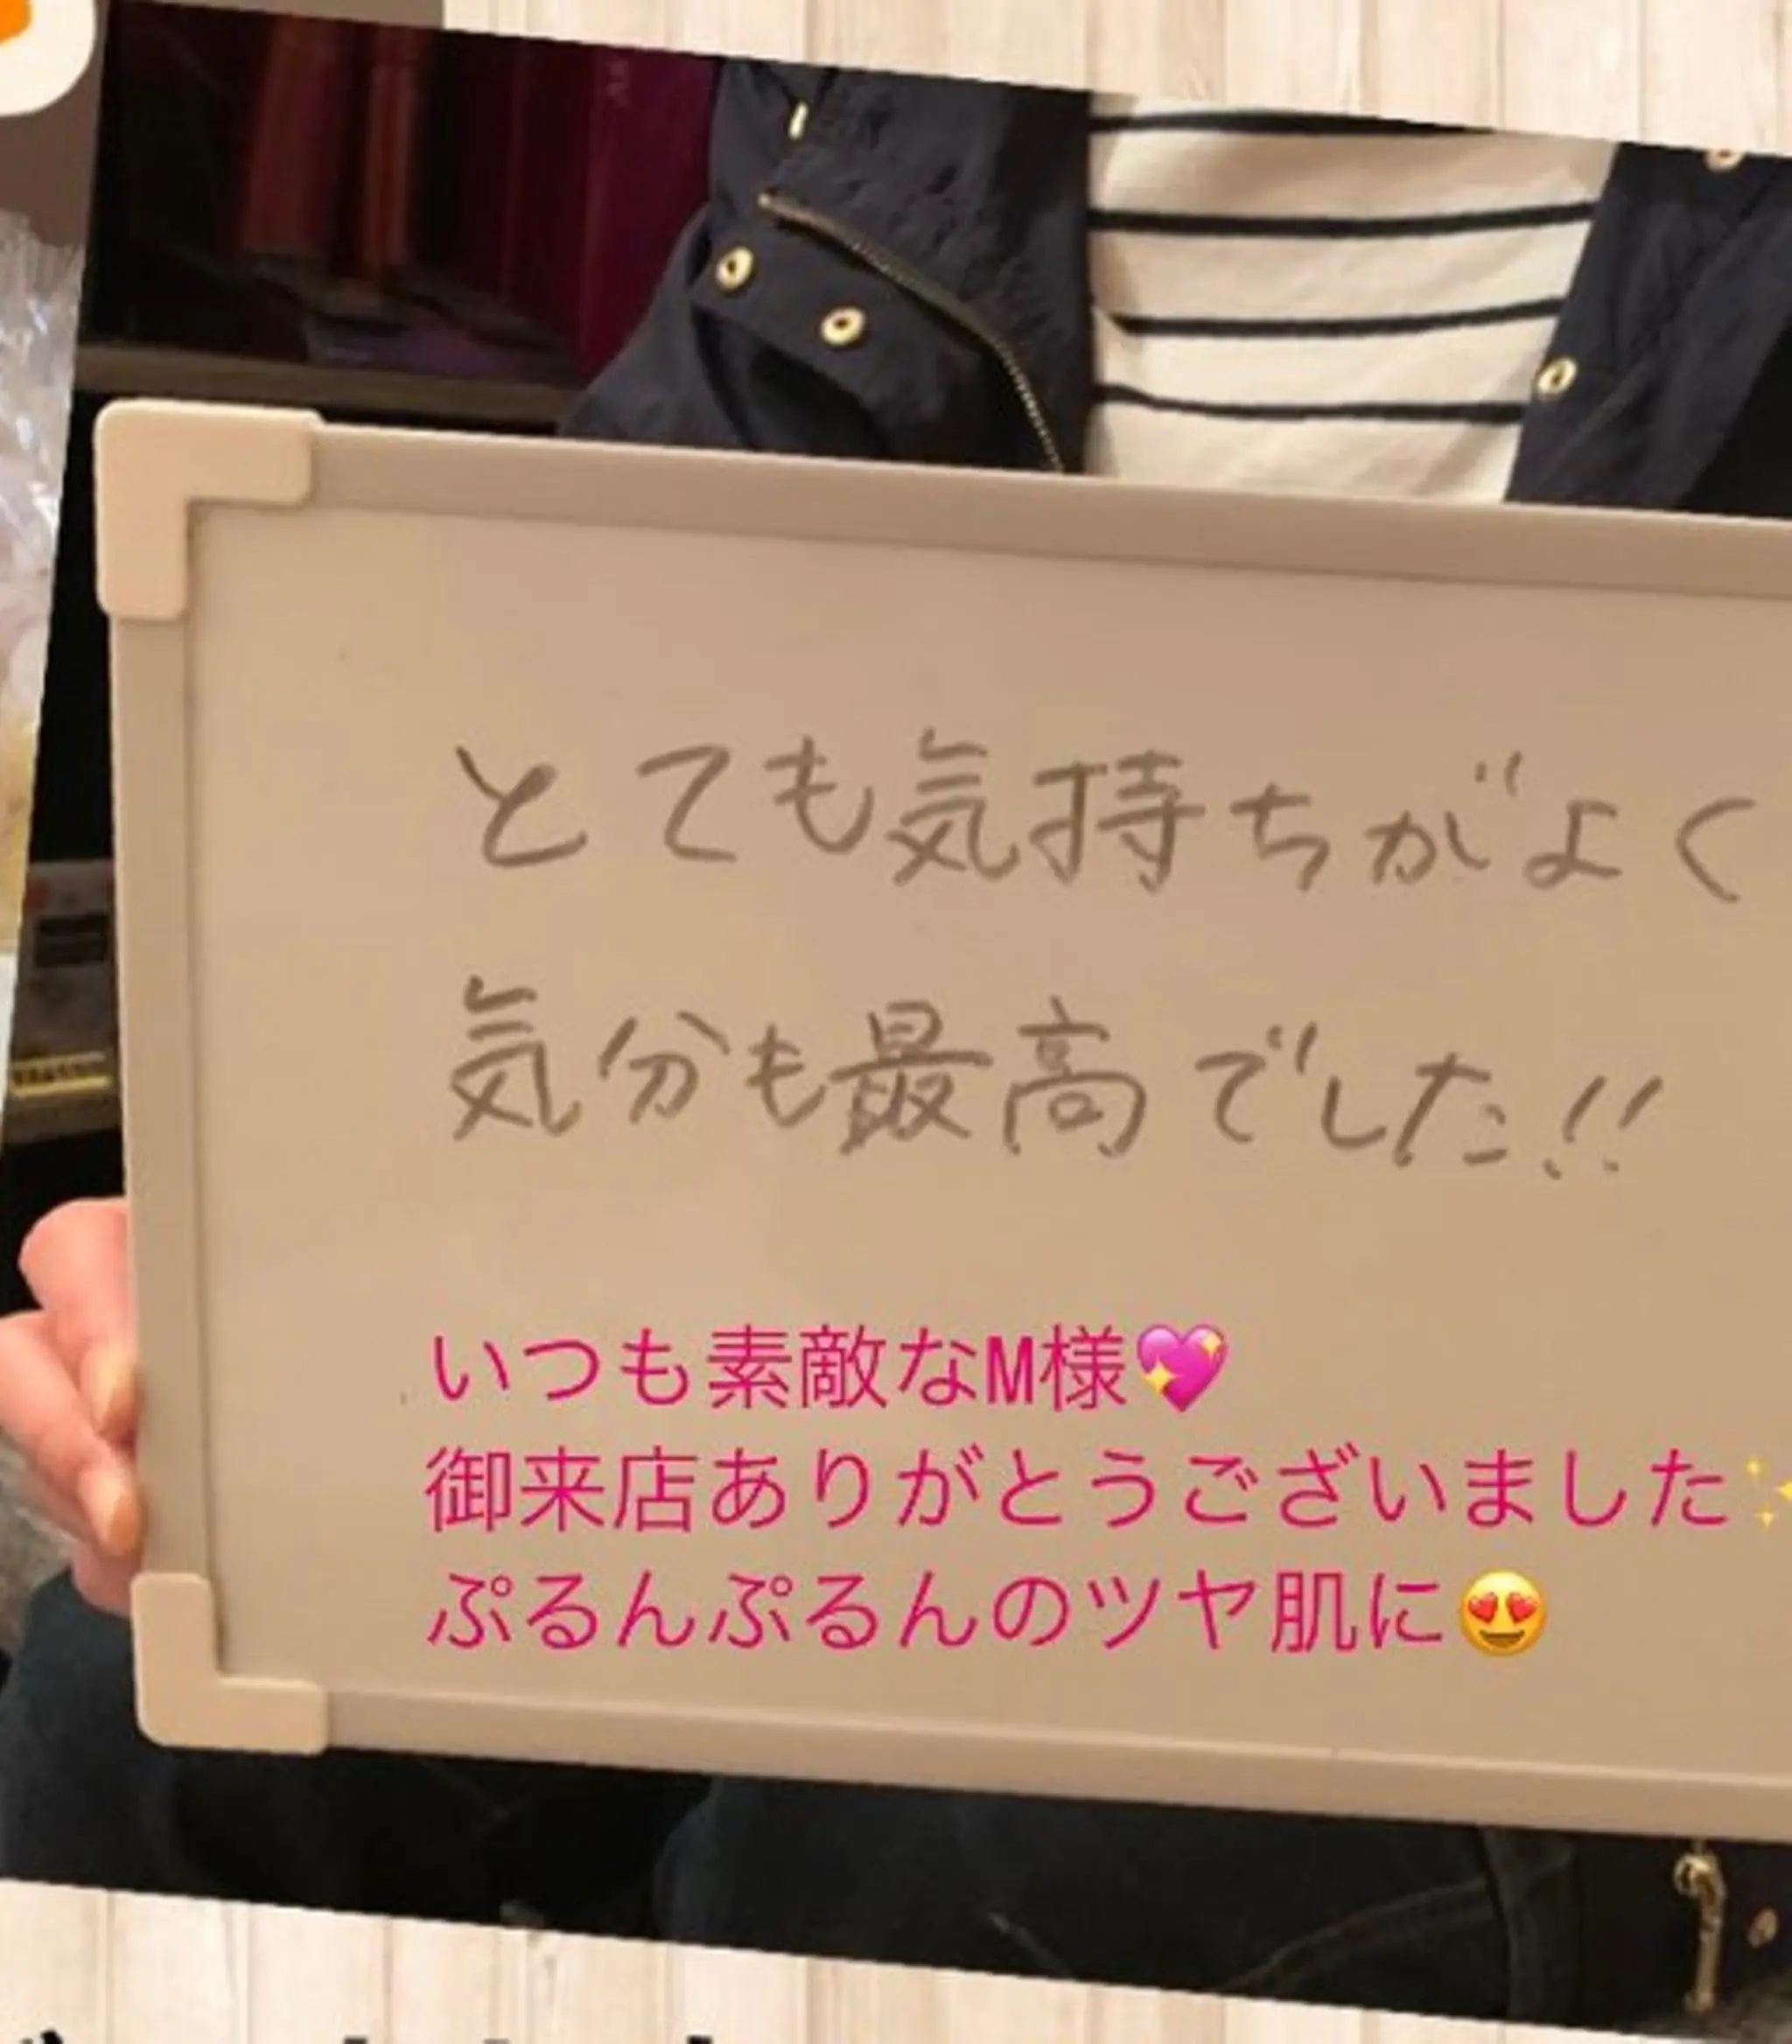 とても気持ちがよく
気分も最高でした!!
いつも素敵なM様💖
御来店ありがとうございました✨
ぷるんぷるんのツヤ肌に😍